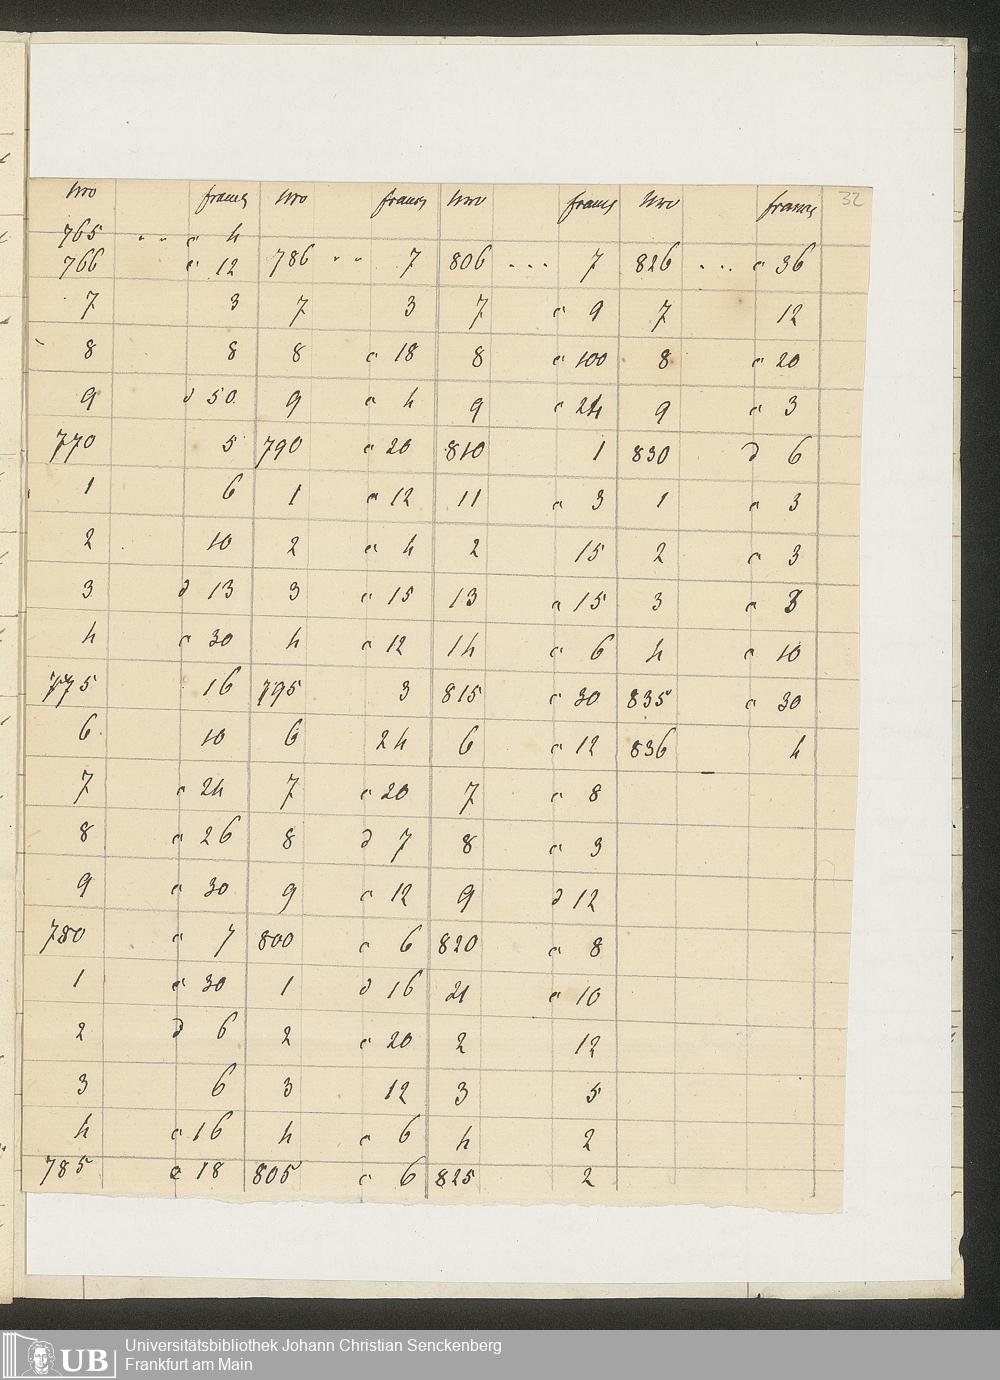 Nro francs Nro francs Nro francs Nro francs 32
765 . . . c 4
766 c 12 786 . . 7 806 . . . 7 826 . . . c 36
7 3 7 3 7 c 9 7 12
8 8 8 c 18 8 c 100 8 c 20
9 d 50 9 c 4 9 c 24 9 c 3
770 5 790 c 20 810 1 830 d 6
1 6 1 c 12 11 c 3 1 c 3
2 10 2 c 4 2 15 2 c 3
3 d 13 3 c 15 13 c 15 3 c 3
4 c 30 4 c 12 14 c 6 4 c 10
775 16 795 3 815 c 30 835 c 30
6 10 6 24 6 c 12 836 4
7 c 24 7 c 20 7 c 8
8 c 26 8 d 7 8 c 3
9 c 30 9 c 12 9 d 12
780 c 7 800 c 6 820 c 8
1 c 30 1 d 16 21 c 10
2 d 6 2 c 20 2 12
3 6 3 12 3 5
4 c 16 4 c 6 4 2
785 c 18 805 c 6 825 2
UB
Universitätsbibliothek Johann Christian Senckenberg
Frankfurt am Main